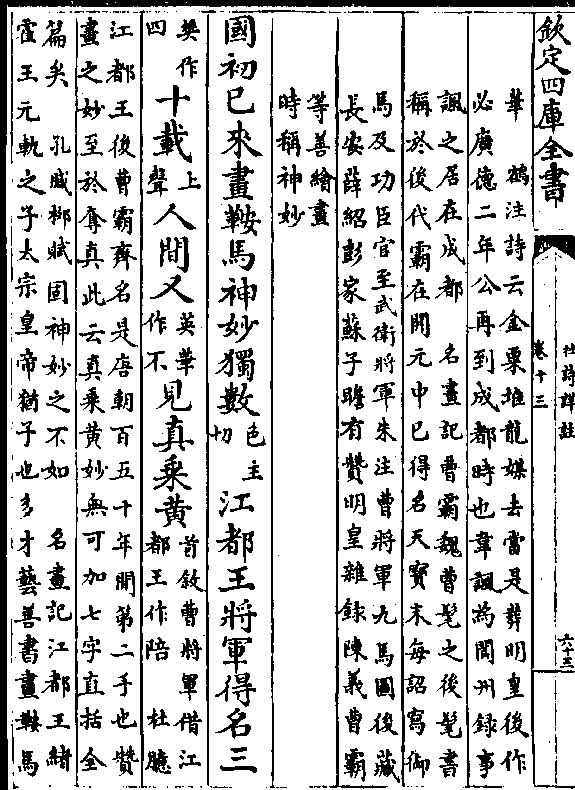 欽定四庫全書
杜詩詳註
卷十三
六十三
華 鶴注詩云金粟堆龍媒去當是葬明皇後作
必廣德二年公再到成都時也韋諷為閬州録事
諷之居在成都 名畫記曹霸魏曹髦之後髦書
稱於後代霸在開元中已得名天寶末每詔寫御
馬及功臣官至武衛將軍朱注曹將軍九馬圖後藏
長安薛紹彭家蘇子瞻有贊明皇雜録陳義曹霸
等善繪畫
時稱神妙
國初已來畫鞍馬神妙獨數色主切江都王將軍得名三
樊作四十載上聲人間又英華作不見真乘黃首敘曹將軍借江都王作陪 杜臆
江都王後曹霸齊名是唐朝百五十年間第二手也贊
畫之妙至於奪真此云真乘黃妙無可加七字直括全
篇矣 孔臧柳賦圖神妙之不如 名畫記江都王緒
霍王元軌之子太宗皇帝猶子也多才藝善書畫鞍馬